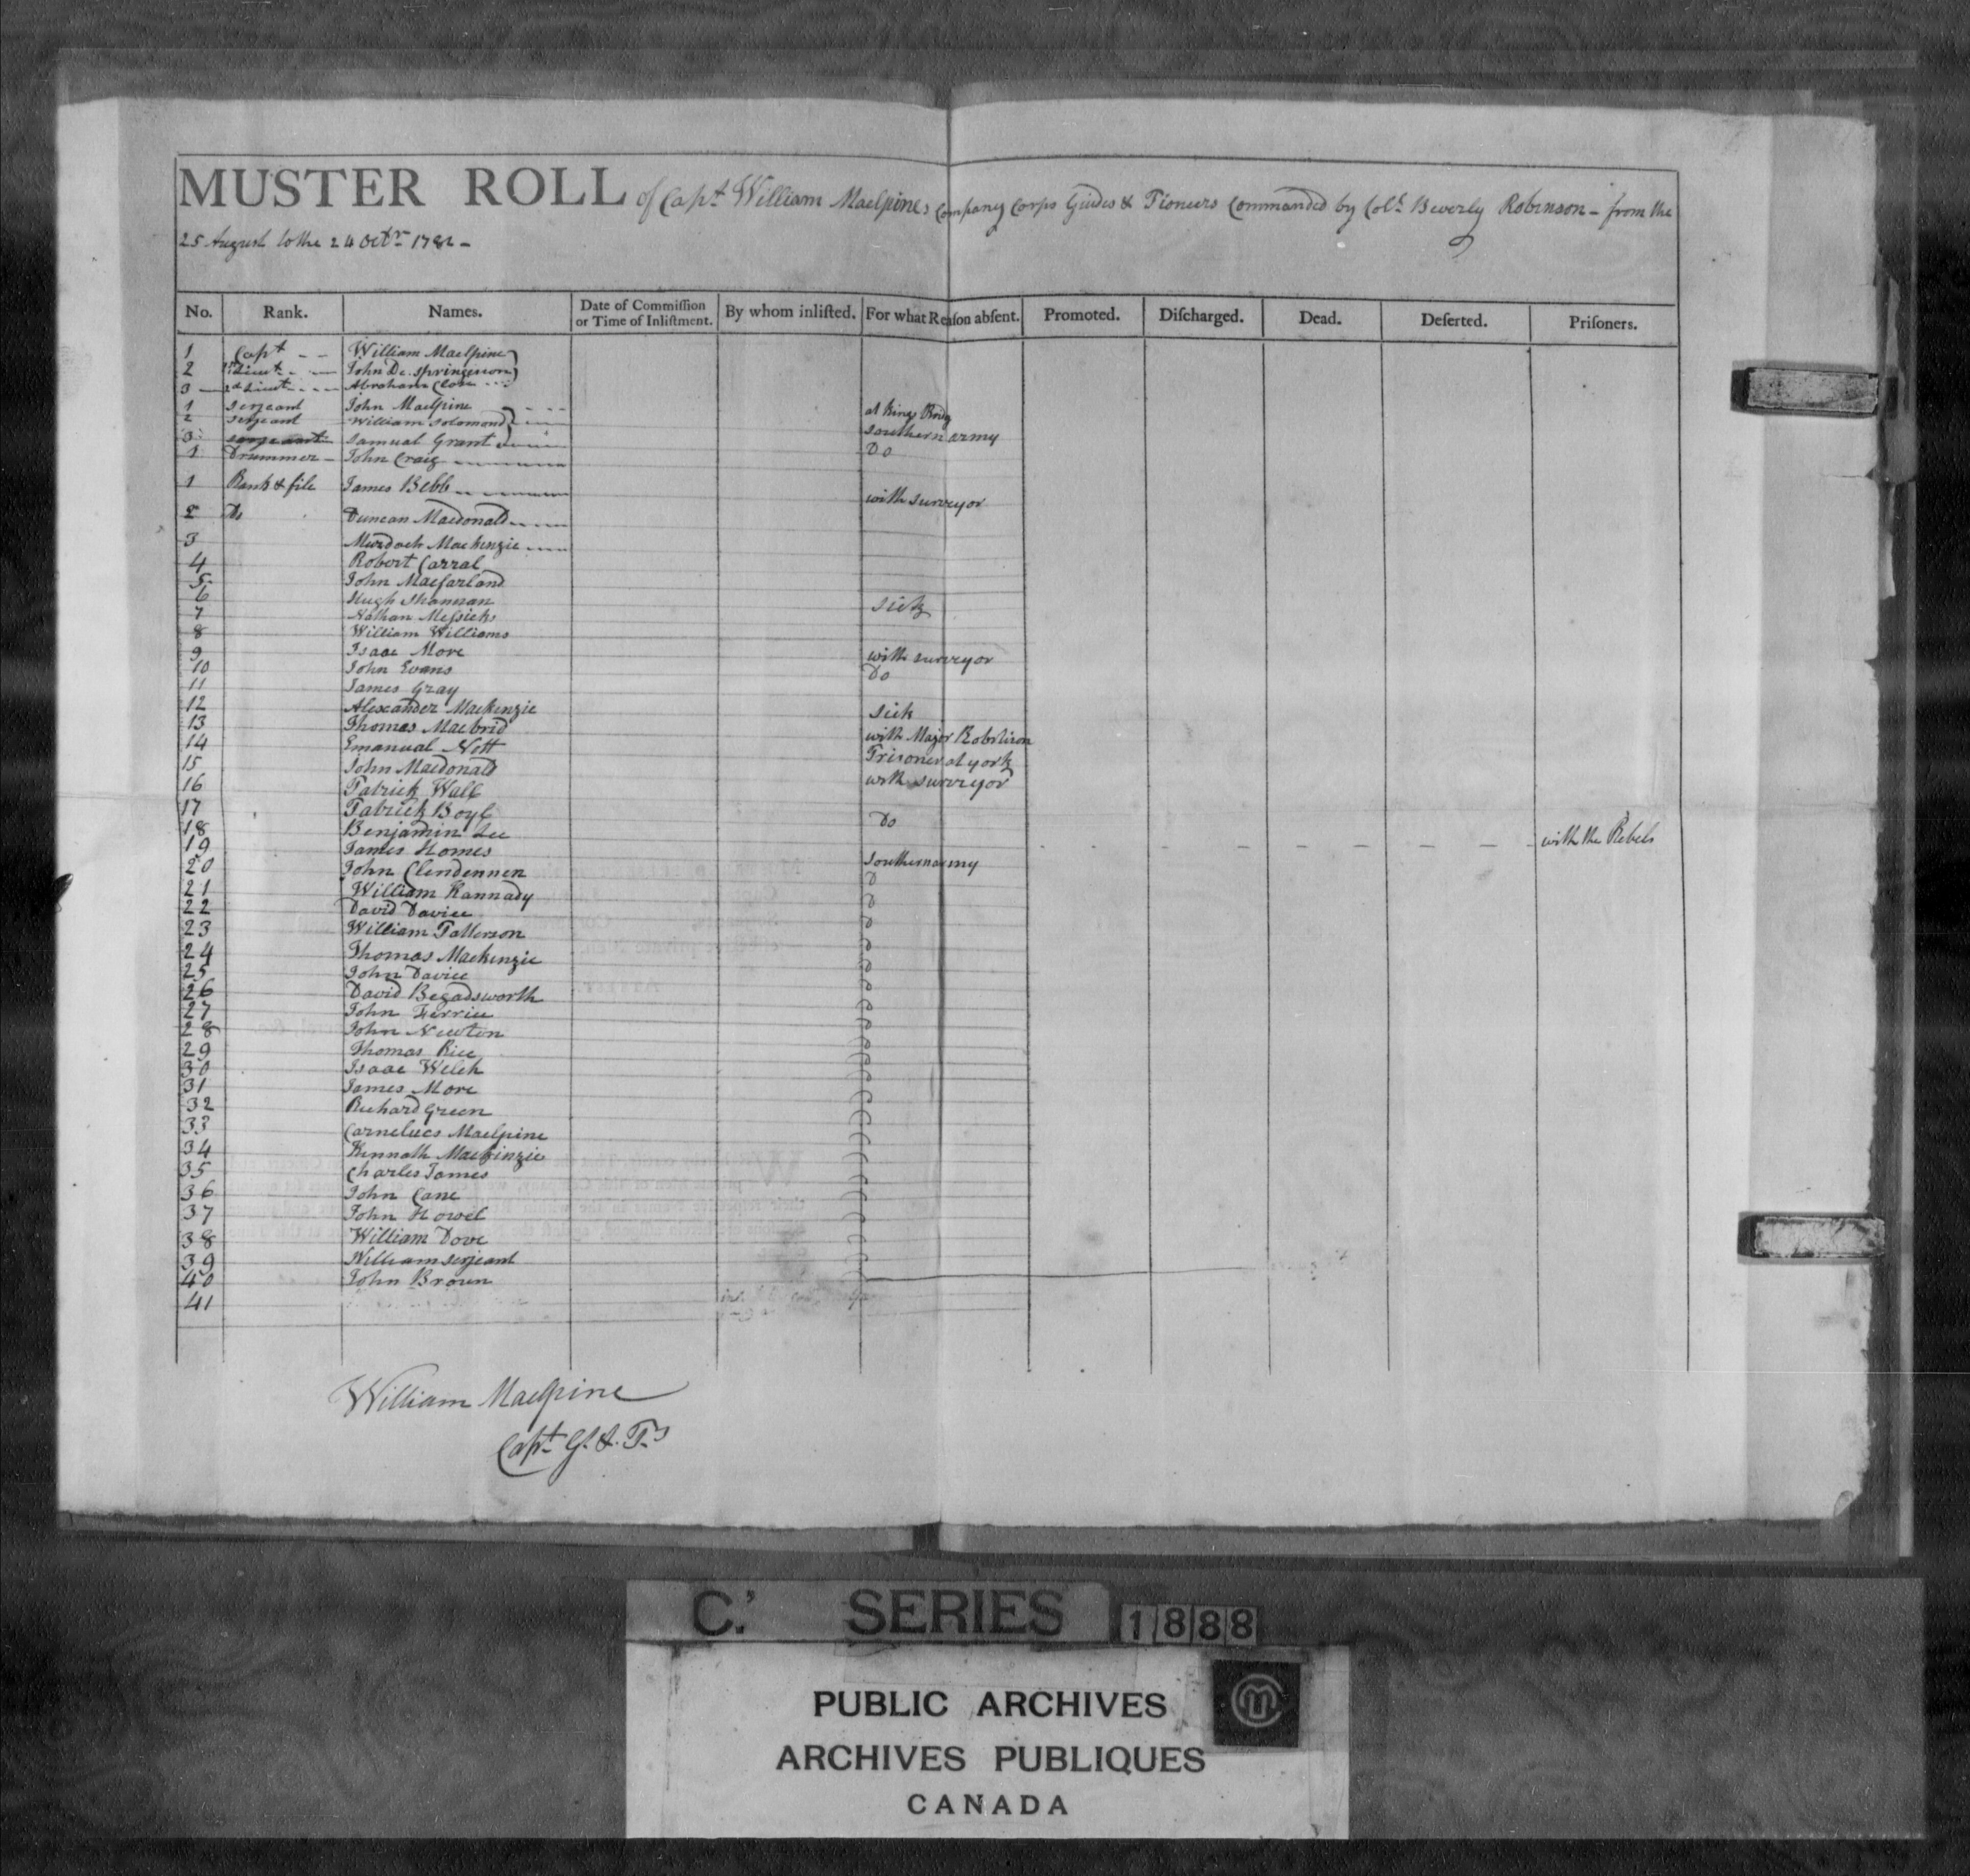 MUSTER ROLL of Capt William Maclpines Company Corps Guides & Pioneers Commanded by Colo Beverly Robinson - from the
25 August to the 24 Octr 1782 -
No. Rank. Names. Date of Commiſſion or Time of Inliſtment. By whom inliſted. For what Reaſon abſent. Promoted. Diſcharged. Dead. Deſerted. Priſoners.
1 Capt William Maclpine
2 1st Lieut John De. Springeson
3 2d Lieut Abraham Close
1 Serjeant John Maclpine at Kings
2 Serjeant William Solomond southern army
3 Serjeant Samual Grant Do
1 Drummer John Craig
1 Rank & file James Bebb with surveyor
2 Do Duncan Macdonald
3 Murdoch Mackenzie
4 Robert Carral
5 John Macfarland
6 Hugh Shannan sick
7 Nathan Messicks
8 William Williams
9 Isaac More with surveyor
10 John Evans Do
11 James Gray
12 Alexander Mackenzie sick
13 Thomas Macbrid with Major
14 Emanual Nott Prisoner at york
15 John Macdonald with surveyor
16 Patrick Wall
17 Patrick Boyl Do
18 Benjamin Lee with the Rebels
19 James Homes southern army
20 John Clendennen D
21 William Kannady
22 David Davice
23 William Patterson
24 Thomas Mackenzie
25 John Davice
26 David Begadsworth
27 John Ferrice
28 John Newton
29 Thomas Rice
30 Isaac Welch
31 James More
32 Richard Green
33 Carnelues Maclpine
34 Kennath Mackinzie
35 Charles James
36 John Cane
37 John Howel
38 William Dove
39 William serjeant
40 John Brown
41
William Maclpine
Capt. G. & Ps
C.' SERIES 1888
PUBLIC ARCHIVES
ARCHIVES PUBLIQUES
CANADA